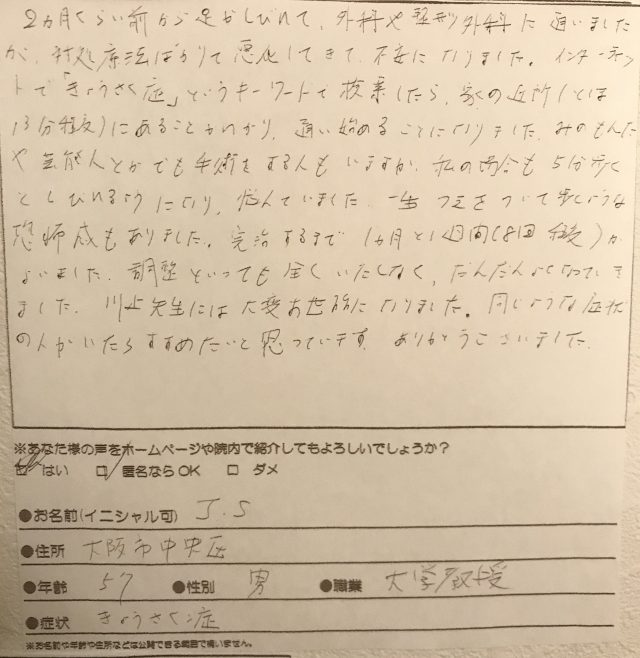 2ヵ月くらい前から足がしびれて、外科や整形外科に通いました
が、対処療法ばかりで悪化してきて、不安になりました。インターネッ
トで「きょうさく症」というキーワードで検索したら、家の近所(とほ
13分程度)にあることがわかり、通い始めることになりました。みのもんた
や芸能人とかでも手術をする人もいますが、私の場合も5分歩く
としびれるようになり、悩んでいました。一生つえをついて歩くような
恐怖感もありました。完治するまで1ヵ月と1週間(8回程度)か
よいました。調整といっても全くいたくなく、だんだんよくなっていき
ました。川上先生には大変お世話になりました。同じような症状
の人がいたらすすめたいと思っています。ありがとうございました。
※あなた様の声をホームページや院内で紹介してもよろしいでしょうか?
はい 匿名ならOK ダメ
●お名前(イニシャル可) J.S
●住所 大阪市中央区
●年齢 57 ●性別 男 ●職業 大学教授
●症状 きょうさく症
※お名前や年齢や住所などは公開できる範囲で構いません。